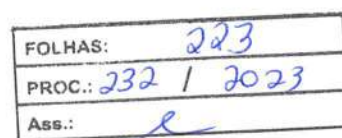 FOLHAS: 223
PROC.: 232 / 2023
Ass.: